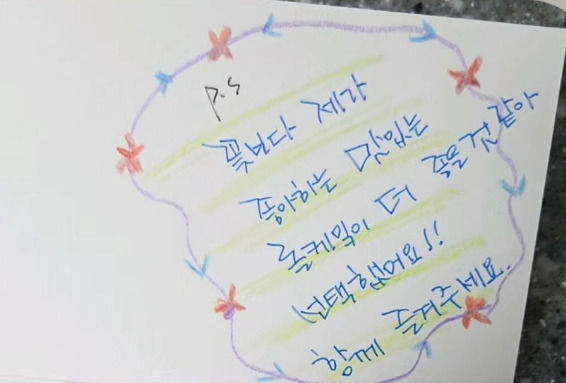 P.S
꽃보다 제가
좋아하는
롤케익이 더 좋을 것 같아
선택했어요!!
함께 즐겨주세요.